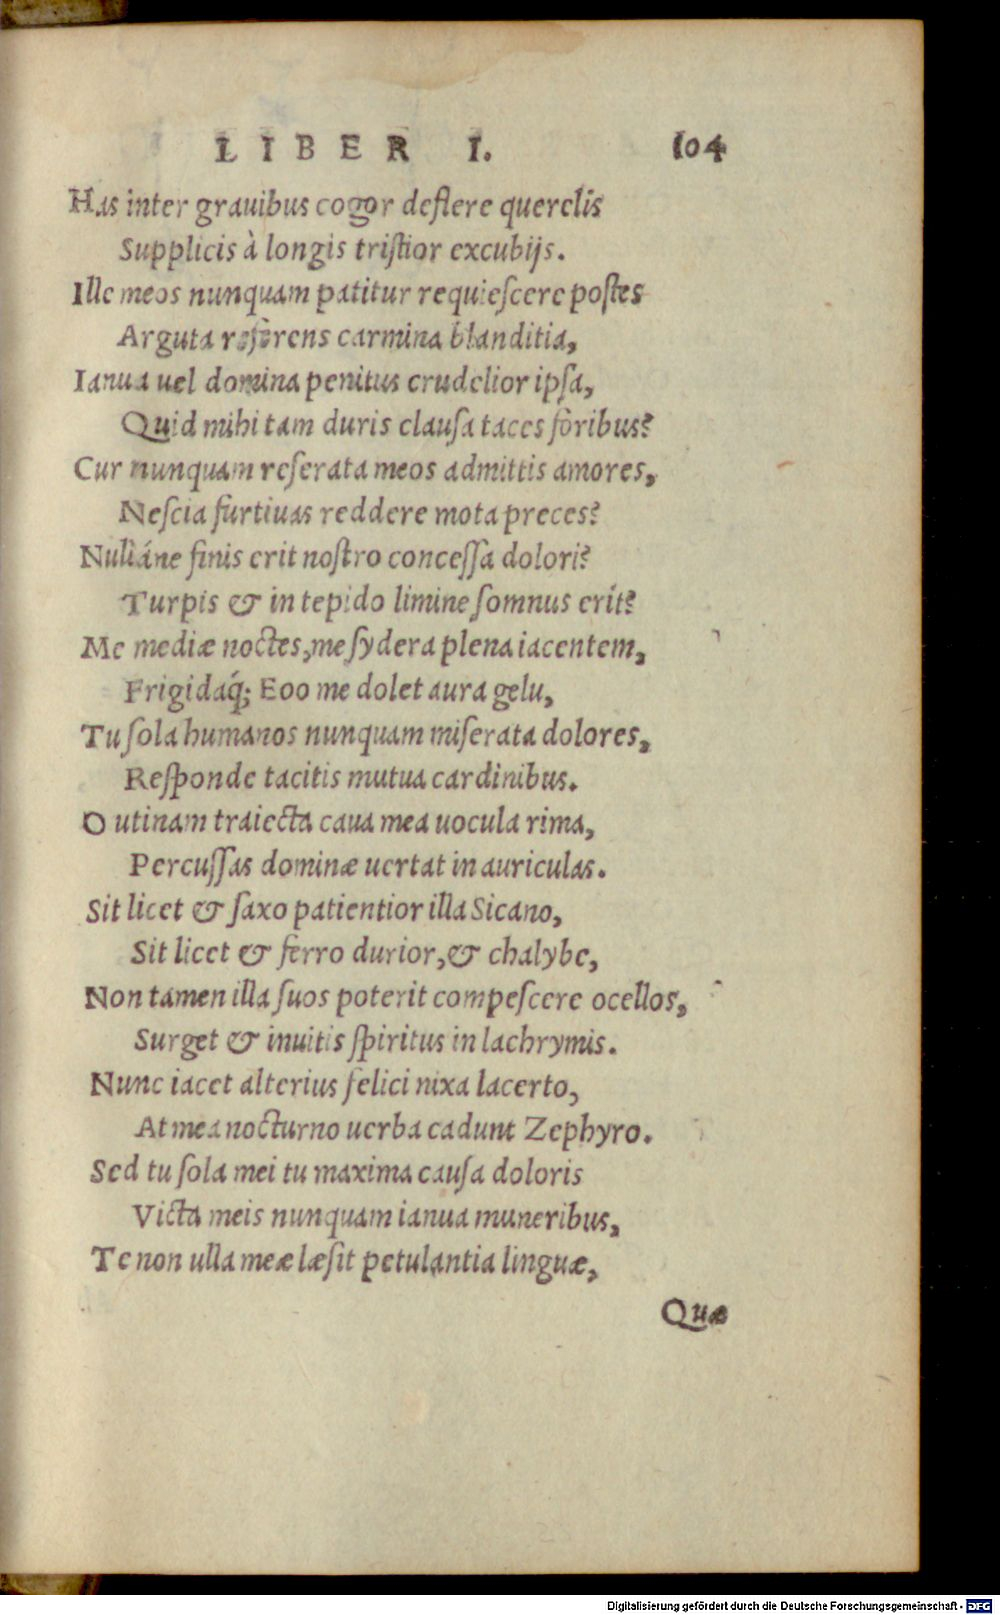 LIBER I. 104
Has inter grauibus cogor deflere querelis
Supplicis à longis tristior excubijs.
Ille meos nunquam patitur requiescere postes
Arguta referens carmina blanditia,
Ianua uel domina penitus crudelior ipsa,
Quid mihi tam duris clausa taces foribus?
Cur nunquam reserata meos admittis amores,
Nescia furtiuas reddere mota preces?
Nulláne finis erit nostro concessa dolori?
Turpis & in tepido limine somnus erit?
Me mediæ noctes, me sydera plena iacentem,
Frigidaq́; Eoo me dolet aura gelu,
Tu sola humanos nunquam miserata dolores,
Responde tacitis mutua cardinibus.
O utinam traiecta caua mea uocula rima,
Percussas dominæ uertat in auriculas.
Sit licet & saxo patientior illa Sicano,
Sit licet & ferro durior, & chalybe,
Non tamen illa suos poterit compescere ocellos,
Surget & inuitis spiritus in lachrymis.
Nunc iacet alterius felici nixa lacerto,
At mea nocturno uerba cadunt Zephyro.
Sed tu sola mei tu maxima causa doloris
Victa meis nunquam ianua muneribus,
Te non ulla meæ læsit petulantia linguæ,
Quæ
Digitalisierung gefördert durch die Deutsche Forschungsgemeinschaft - DFG